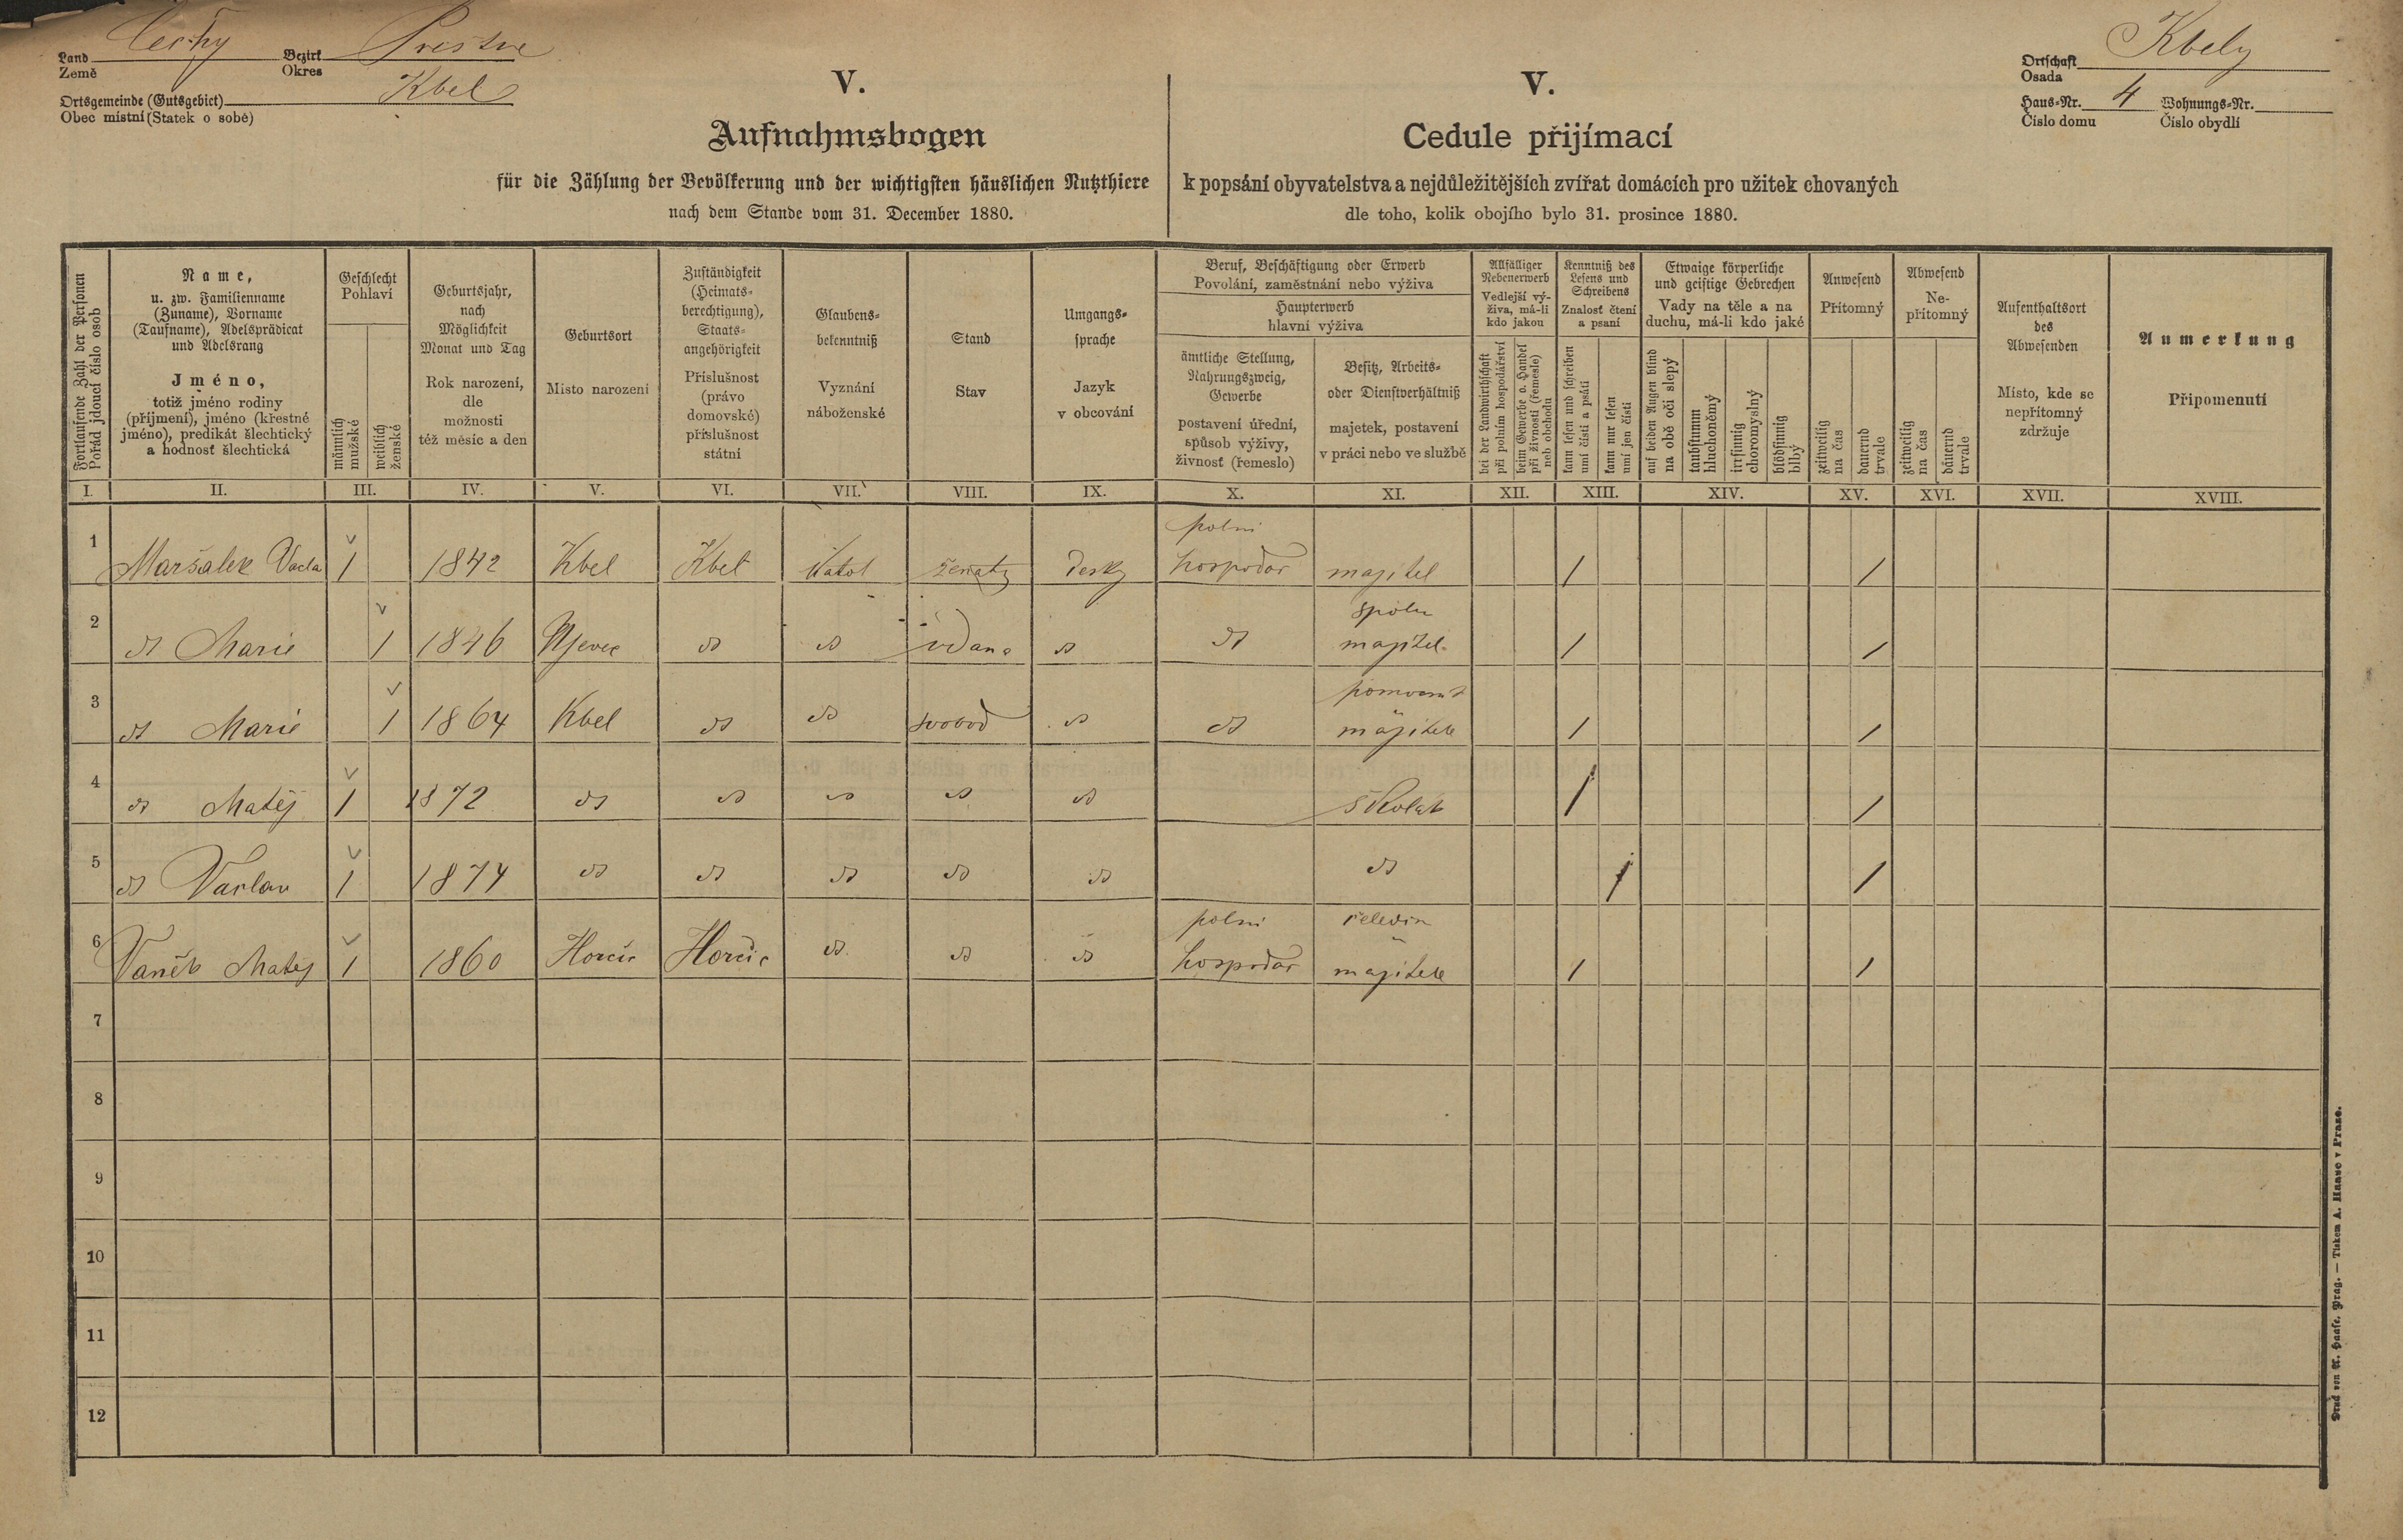 Land Čechy Bezirk Přestice
Země Okres
Ortsgemeinde (Gutsgebiet) Kbel
Obec místní (Statek o sobě)
Ortschaft Kbely
Osada
Haus-Nr. 4 Wohnungs-Nr.
Číslo domu Číslo obydlí
V.
Aufnahmsbogen
für die Zählung der Bevölkerung und der wichtigsten häuslichen Nutzthiere
nach dem Stande vom 31. December 1880.
V.
Cedule přijímací
k popsání obyvatelstva a nejdůležitějších zvířat domácích pro užitek chovaných
dle toho, kolik obojího bylo 31. prosince 1880.
Fortlaufende Zahl der Personen
Pořád jdoucí číslo osob
Name,
u. zw. Familienname
(Zuname), Vorname
(Taufname), Adelsprädicat
und Adelsrang
Jméno,
totiž jméno rodiny
(příjmení), jméno (křestné
jméno), predikát šlechtický
a hodnosť šlechtická
Geschlecht
Pohlaví
männlich
mužské
weiblich
ženské
Geburtsjahr,
nach
Möglichkeit
Monat und Tag
Rok narození,
dle
možnosti
též měsíc a den
Geburtsort
Místo narození
Zuständigkeit
(Heimats-
berechtigung),
Staats-
angehörigkeit
Příslušnost
(právo
domovské)
příslušnost
státní
Glaubens-
bekenntniß
Vyznání
náboženské
Stand
Stav
Umgangs-
sprache
Jazyk
v obcování
Beruf, Beschäftigung oder Erwerb
Povolání, zaměstnání nebo výživa
Haupterwerb
hlavní výživa
ämtliche Stellung,
Nahrungszweig,
Gewerbe
postavení úřední,
spůsob výživy,
živnosť (řemeslo)
Besitz, Arbeits-
oder Dienstverhältniß
majetek, postavení
v práci nebo ve službě
Allfälliger
Nebenerwerb
Vedlejší vý-
živa, má-li
kdo jakou
bei der Landwirthschaft
při polním hospodářství
beim Gewerbe o. Handel
při živnosti (řemesle)
neb obchodu
Kenntniß des
Lesens und
Schreibens
Znalosť čtení
a psaní
kann lesen und schreiben
umí čísti a psáti
kann nur lesen
umí jen čísti
Etwaige körperliche
und geistige Gebrechen
Vady na těle a na
duchu, má-li kdo jaké
auf beiden Augen blind
na obě oči slepý
taubstumm
hluchoněmý
irrsinnig
choromyslný
blödsinnig
blbý
Anwesend
Přítomný
zeitweilig
na čas
dauernd
trvale
Abwesend
Ne-
přítomný
zeitweilig
na čas
dauernd
trvale
Aufenthaltsort
des
Abwesenden
Místo, kde se
nepřítomný
zdržuje
Anmerkung
Připomenutí
I. II. III. IV. V. VI. VII. VIII. IX. X. XI. XII. XIII. XIV. XV. XVI. XVII. XVIII.
polní
1 Maršalek Vacla 1 1842 Kbel Kbel Katol ženatý česky hospodář majitel / /
spolu
2 dt Marie 1 1846 dt dt vdana dt dt majitel / /
3 dt Marie 1 1864 Kbel dt dt svobod dt dt majitele / /
4 dt Matěj 1 1872 dt dt dt dt dt školák / /
5 dt Vaclav 1 1874 dt dt dt dt dt dt / /
polní čeledín
6 Vaněk Matěj 1 1860 Horčic Horčic dt dt dt hospodář majitele / /
7
8
9
10
11
12
Druck von A. Haase, Prag. — Tiskem A. Haase v Praze.